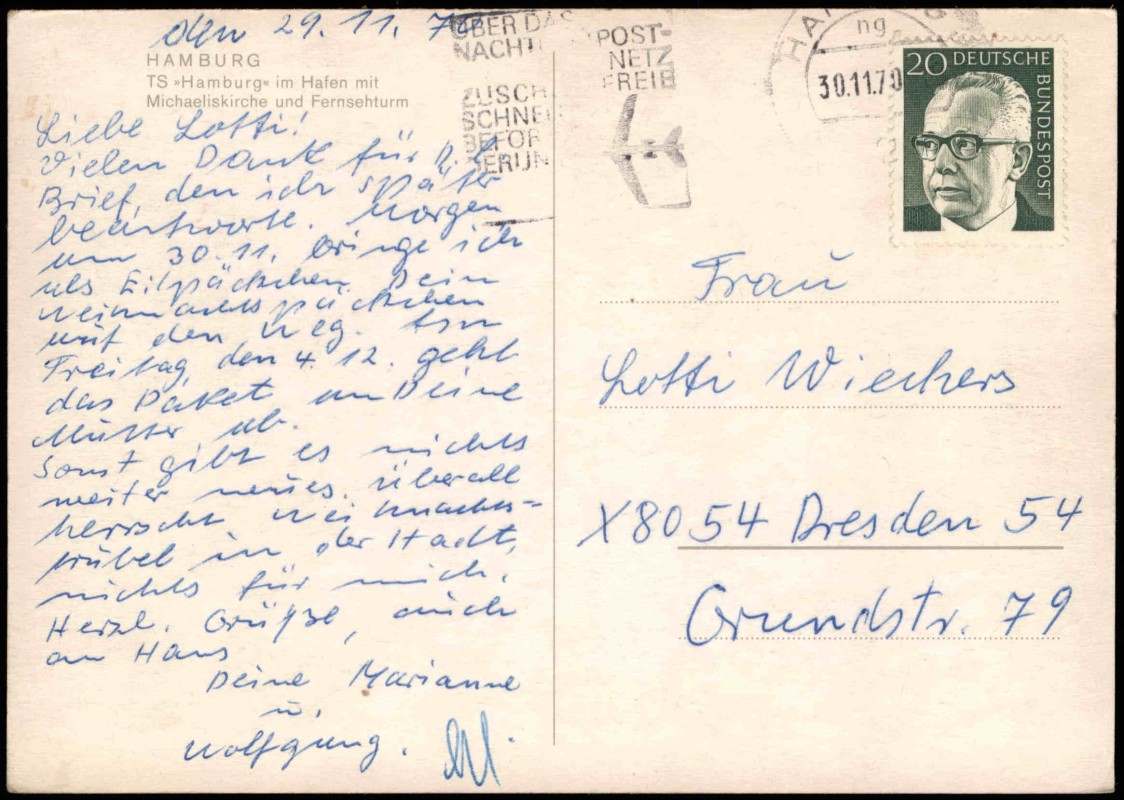 den 29.11.70
HAMBURG
TS »Hamburg« im Hafen mit
Michaeliskirche und Fernsehturm
Liebe Lotti!
Vielen Dank für
Brief, den ich später
beantworte. Morgen
am 30.11. bringe ich
als Eilpäckchen Dein
Weihnachtspäckchen
auf den Weg. Am
Freitag, den 4.12. geht
das Paket an Deine
Mutter ab.
Sonst gibt es nichts
weiter neues. Überall
herrscht Weihnachts-
trubel in der Stadt,
nichts für mich.
Herzl. Grüße, auch
an Hans
Deine Marianne
u.
Wolfgang.
ÜBER DAS
NACHTL
POST-
NETZ
FREIB
ZUSCH
SCHNEL
BEFÖR
BERLIN
HA
ng
30.11.70
20 DEUTSCHE
BUNDESPOST
Frau
Lotti Wiechers
X8054 Dresden 54
Grundstr. 79